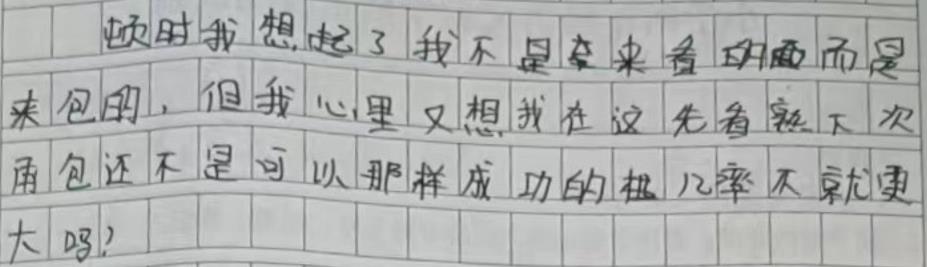 顿时我想起了我不是来看的而是
来包的，但我心里又想我在这先看熟下次
再包还不是可以那样成功的机几率不就更
大吗？